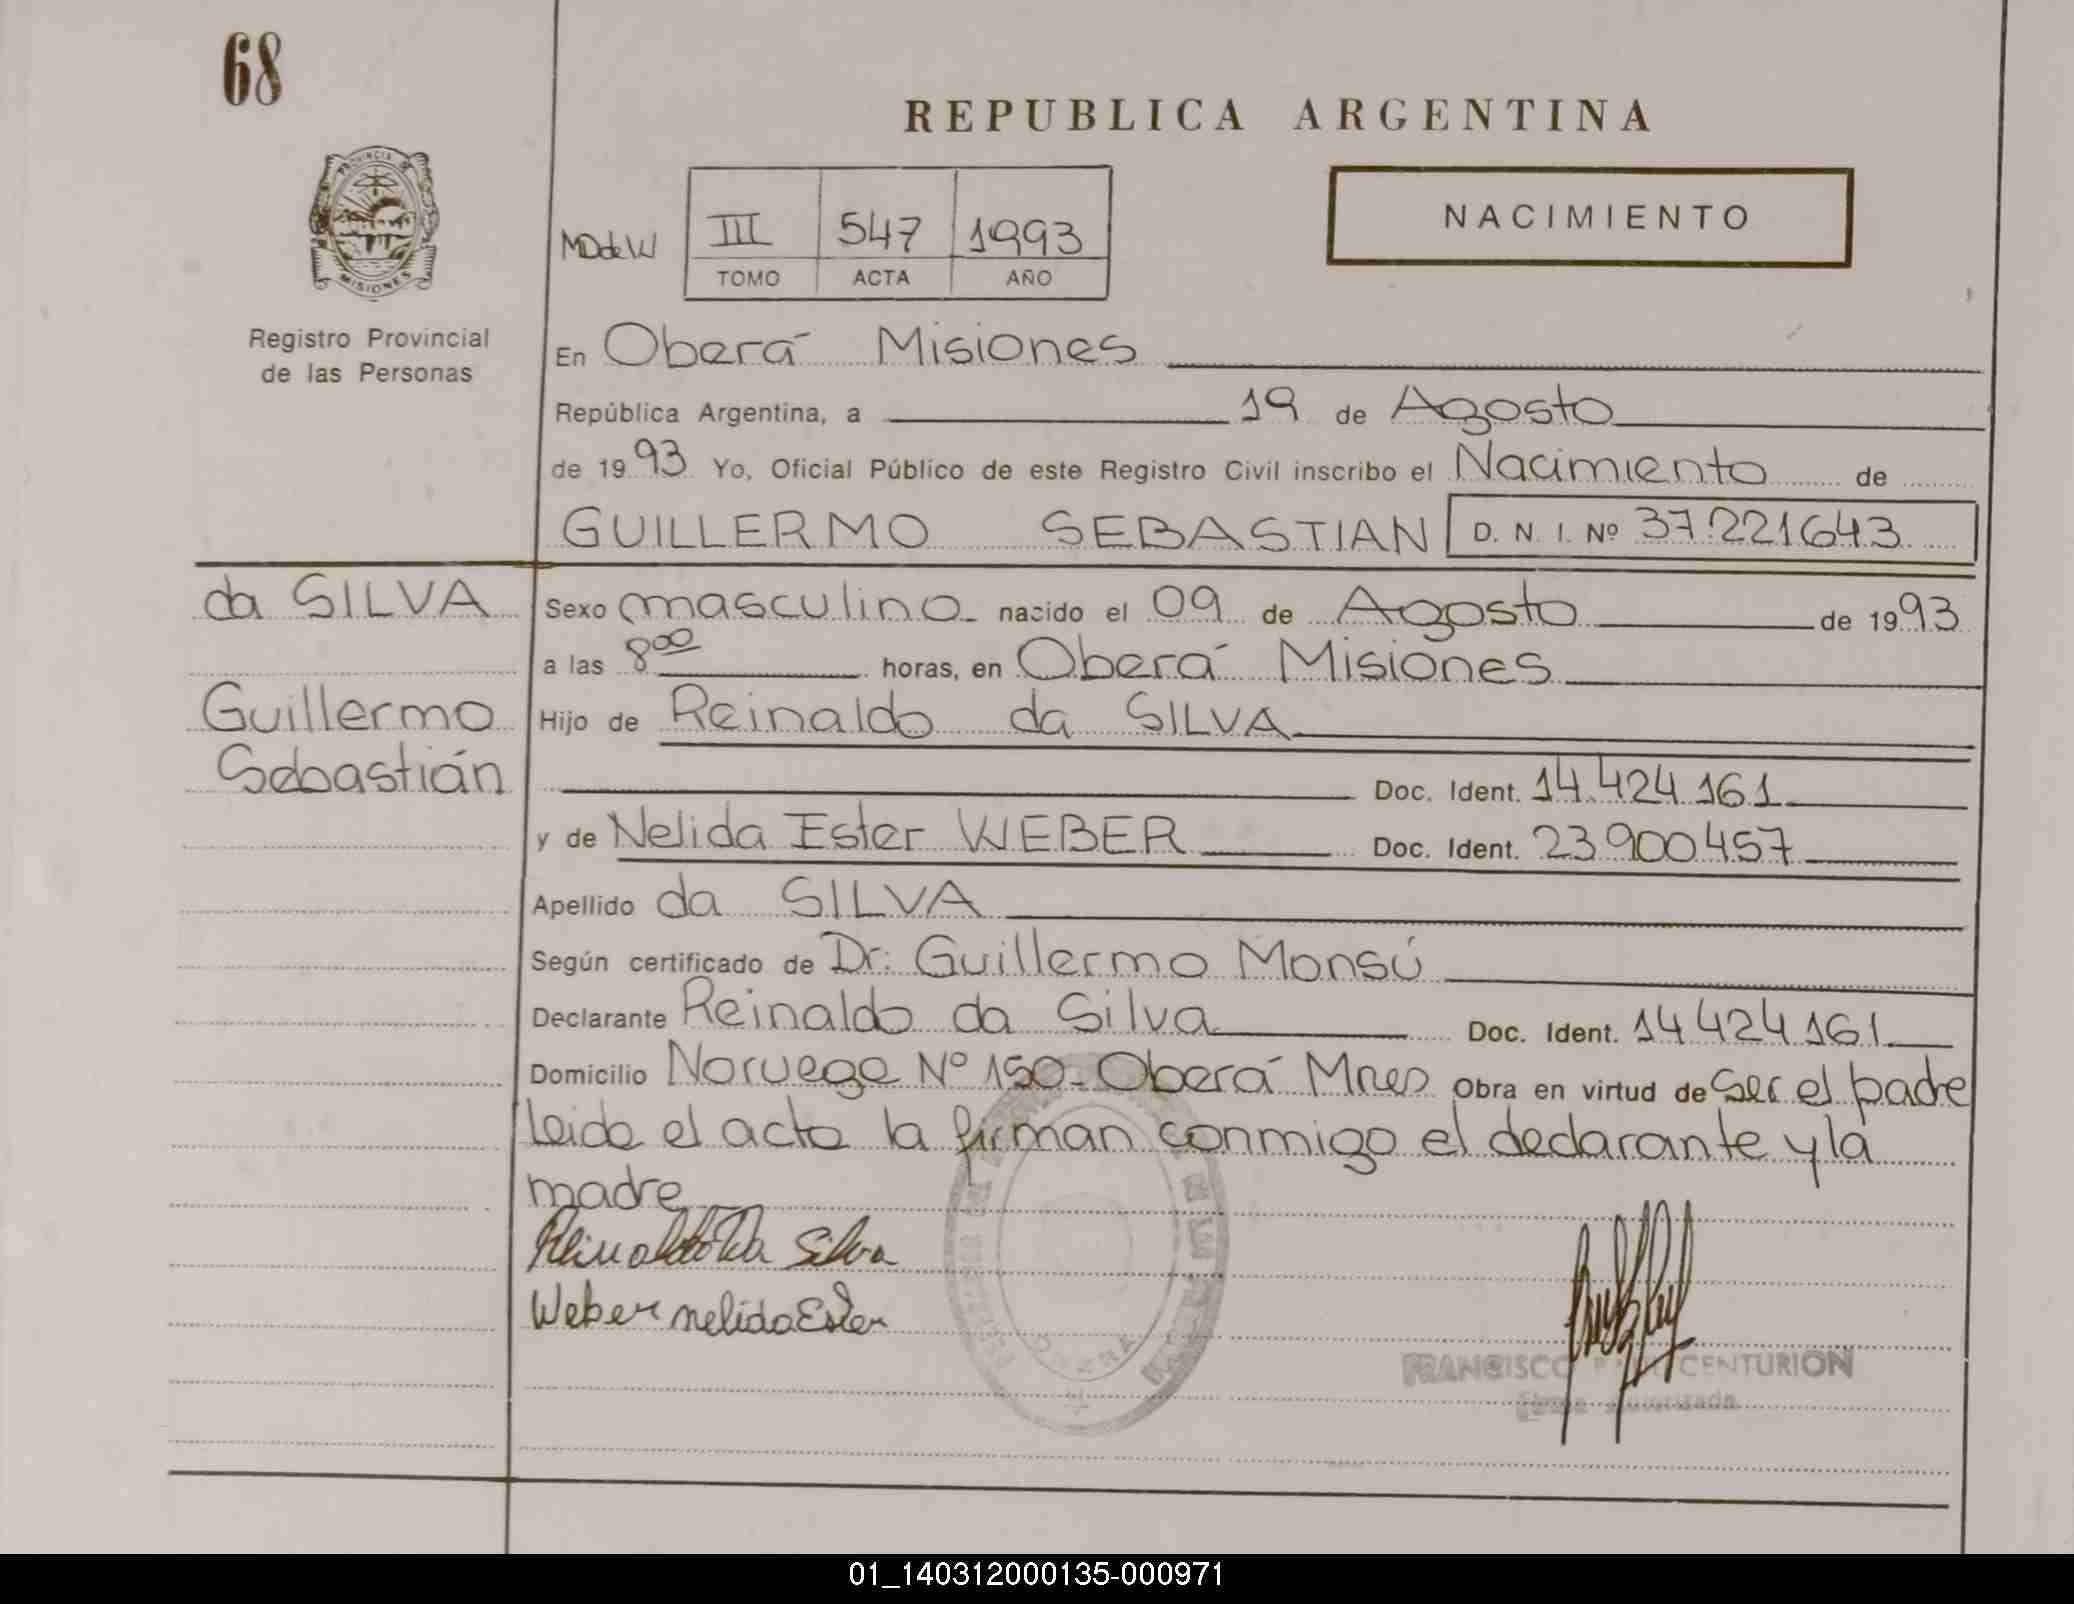 68
REPUBLICA ARGENTINA
PROVINCIA DE MISIONES
NACIMIENTO
III 547 1993
TOMO ACTA AÑO
Registro Provincial
de las Personas
En Oberá Misiones
República Argentina, a 19 de Agosto
de 1993 Yo, Oficial Público de este Registro Civil inscribo el Nacimiento de
GUILLERMO SEBASTIAN D. N. I. Nº 37.221643
da SILVA
Guillermo
Sebastián
Sexo masculino nacido el 09 de Agosto de 1993
a las 8 00 horas, en Oberá Misiones
Hijo de Reinaldo da SILVA
Doc. Ident. 14.424.161
y de Nelida Ester WEBER Doc. Ident. 23.900.457
Apellido da SILVA
Según certificado de Dr. Guillermo Monsú
Declarante Reinaldo da Silva Doc. Ident. 14.424.161
Domicilio Noruega Nº 150-Oberá Mnes Obra en virtud de Ser el padre
leida el acta la firman conmigo el declarante y la
madre
Reinaldo Da Silva
Weber nelida Ester
OBERA
FRANCISCO CENTURION
Firma Autorizada
01_140312000135-000971